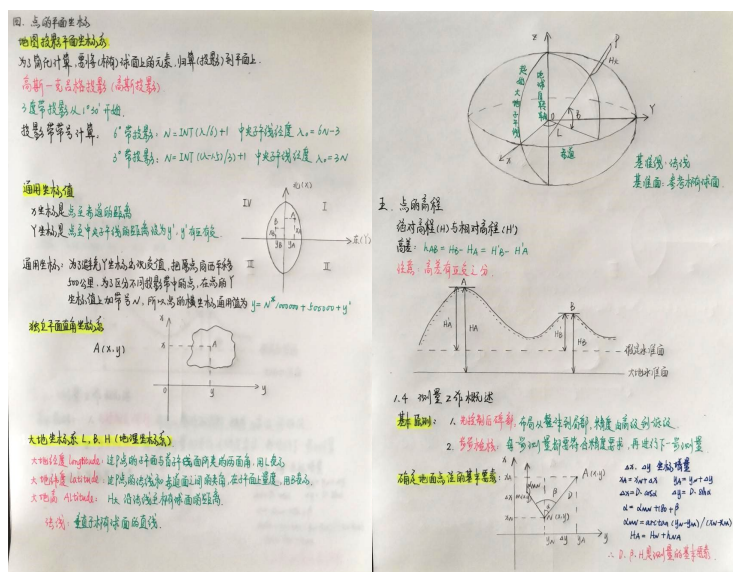 四. 点的平面坐标
地图投影平面坐标系
为了简化计算,要将(椭)球面上的元素,归算(投影)到平面上.
高斯-克吕格投影(高斯投影)
3度带投影从1°30'开始.
投影带带号计算: 6°带投影: N=INT(λ/6)+1 中央子午线经度 λ0=6N-3
3°带投影: N=INT((λ-1.5)/3)+1 中央子午线经度 λ0=3N
通用坐标值
X坐标是点至赤道的距离
Y坐标是点至中央子午线的距离设为y'. y'有正有负.
北(X)
IV
I
III
II
A
B
yB
yA
东(Y)
通用坐标: 为了避免Y坐标出现负值,把原点向西平移
500公里. 为了区分不同投影带中的点, 在点的Y
坐标值上加带号N, 所以点的横坐标通用值为 y=N*1000000+500000+y'
独立平面直角坐标系
A(x.y)
x
x
A
0
y
y
大地坐标系 L, B, H (地理坐标系)
大地经度 longitude: 过P点的子午面与首子午线面所夹的两面角,用L表示
大地纬度 latitude: 过P点的法线和赤道面之间的夹角,在子午面上量度,用B表示.
大地高 Altitude: 沿法线至椭球面的距离.
法线: 垂直于椭球面的直线.
Z
P
起始大地子午线
地球自转轴
O
B
L
Y
X
赤道
基准线: 法线
基准面: 参考椭球面.
五. 点的高程
绝对高程(H)与相对高程(H')
高差: hAB = HB - HA = H'B - H'A
注意: 高差有正负之分.
A
B
H'A
HA
H'B
HB
假定水准面
大地水准面
1.4 测量工作概述
基本原则: 1. 先控制后碎部, 布局从整体到局部, 精度由高级到低级
2. 步步检核: 每步测量都要符合精度要求, 再进行下一步测量
确定地面点位的基本要素:
x
M
xA
A(x.y)
β
α
D
xN
N(x.y)
yN
Δy
yA
y
Δx. Δy 坐标增量
xA=xN+Δx yA=yN+Δy
Δx=D·cosα Δy=D·sinα
α=αMN+180+β
αMN=arctan(yN-yM)/(xN-xM)
HA=HN+hNA
∴ D. β. H是测量的基本要素.